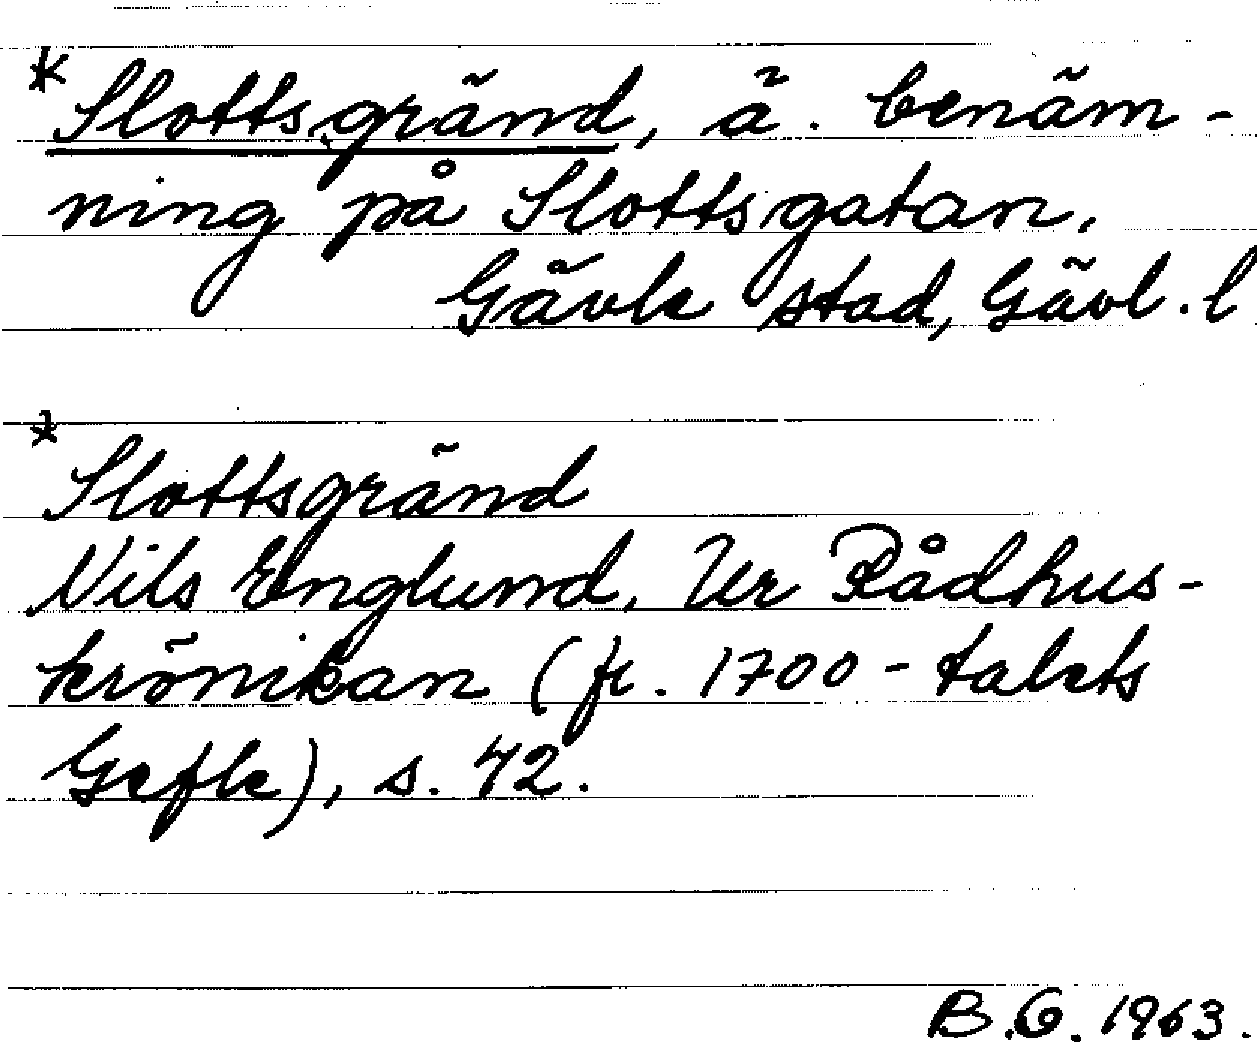 *Slottsgränd, ä. benäm-
ning på Slottsgatan.
Gävle stad, Gävl. l
*Slottsgränd
Nils Englund, Ur Rådhus-
krönikan (fr. 1700-talets
Gefle), s. 42.
B.G. 1963.